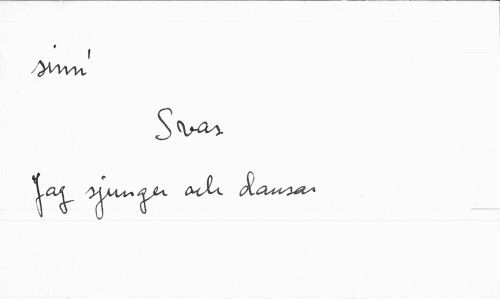 sinn'
Svar
Jag sjunger och dansar